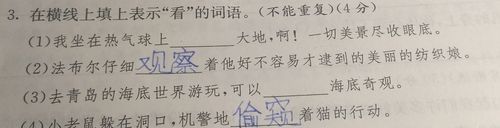 3. 在横线上填上表示“看”的词语。(不能重复)(4 分)
(1)我坐在热气球上________大地,啊! 一切美景尽收眼底。
(2)法布尔仔细观察着他好不容易才逮到的美丽的纺织娘。
(3)去青岛的海底世界游玩,可以________海底奇观。
(4)小老鼠躲在洞口,机警地偷窥着猫的行动。